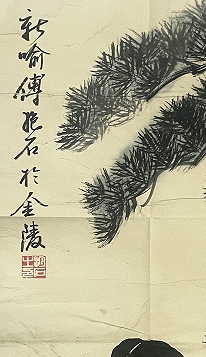 新喻傅抱石於金陵